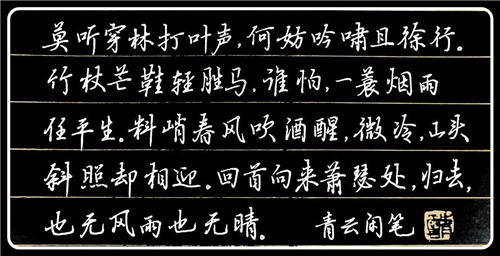 莫听穿林打叶声，何妨吟啸且徐行。
竹杖芒鞋轻胜马，谁怕，一蓑烟雨
任平生。料峭春风吹酒醒，微冷，山头
斜照却相迎。回首向来萧瑟处，归去，
也无风雨也无晴。 青云闲笔